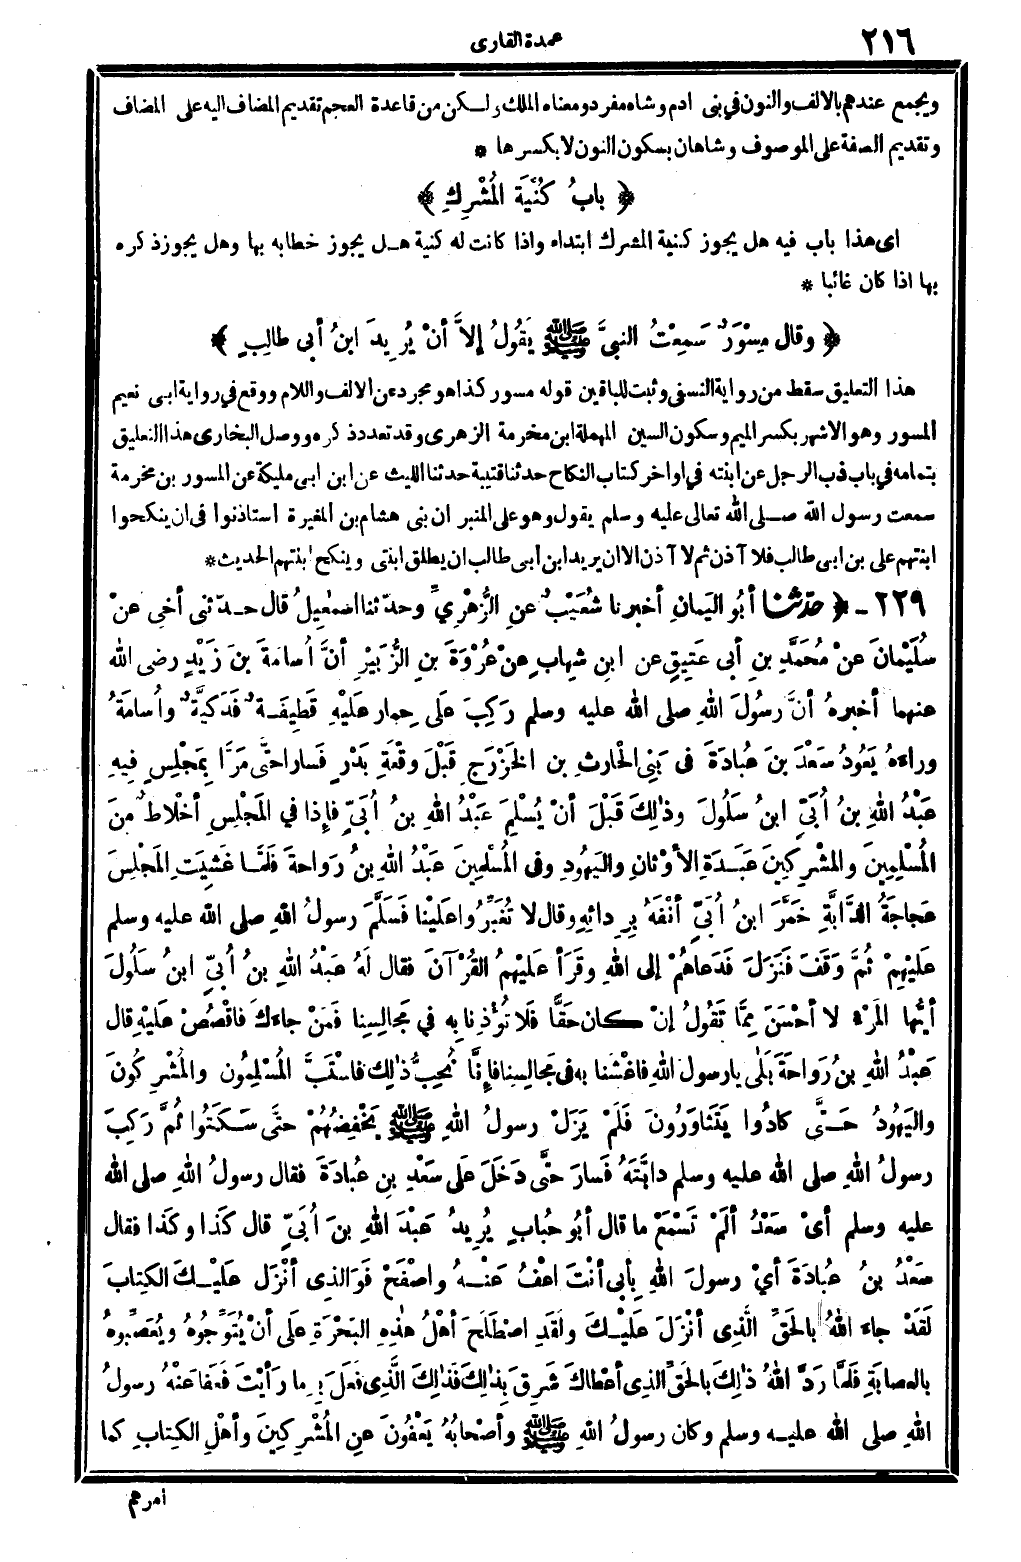 ٢١٦
عمدة القارى
ويجمع عندهم بالالف والنون في بنى ادم وشاه مفرد ومعناه الملك ولكن من قاعدة العجم تقديم المضاف اليه على المضاف
وتقديم الصفة على الموصوف وشاهان بسكون النون لا بكسرها *
﴿ بابُ كُنْيَةِ المُشْرِكِ ﴾
اى هذا باب فيه هل يجوز كنية المشرك ابتداء واذا كانت له كنية هل يجوز خطابه بها وهل يجوز ذكره
بها اذا كان غائبا *
﴿ وقال مِسْوَرٌ سَمِعْتُ النبيَّ ﷺ يَقُولُ إلاَّ أنْ يُرِيدَ ابنُ أبى طالِبٍ ﴾
هذا التعليق سقط من رواية النسفى وثبت للباقين قوله مسور كذا هو مجرد عن الالف واللام ووقع في رواية ابى نعيم
المسور وهو الاشهر بكسر الميم وسكون السين المهملة ابن مخرمة الزهرى وقد تعدد ذكره ووصل البخارى هذا التعليق
بتمامه في باب ذب الرجل عن ابنته في اواخر كتاب النكاح حدثنا قتيبة حدثنا الليث عن ابن ابى مليكة عن المسور بن مخرمة
سمعت رسول الله صلى الله تعالى عليه وسلم يقول وهو على المنبر ان بنى هشام بن المغيرة استاذنوا فى ان ينكحوا
ابنتهم على بن ابى طالب فلا آذن ثم لا آذن الا ان يريد ابن أبى طالب ان يطلق ابنتى وينكح ابنتهم الحديث *
٢٢٩ - ﴿ حدّثنا أبُو اليَمانِ أخبرنا شُعَيْبٌ عنِ الزُّهْرِيِّ وحدّثنا اسْمٰعِيلُ قال حدّثنى أخِى عنْ
سُلَيْمَانَ عنْ مُحَمَّدِ بنِ أبى عَتِيقٍ عنِ ابنِ شِهابٍ عنْ عُرْوَةَ بنِ الزُّبَيْرِ أنَّ أُسامَةَ بنَ زَيْدٍ رضى الله
عنهما أخبرهُ أنَّ رسُولَ اللهِ صلى الله عليه وسلم رَكِبَ عَلَى حِمارٍ عَلَيْهِ قَطِيفَةٌ فَدَكِيَّةٌ وأُسامَةُ
وراءهُ يَعُودُ سَعْدَ بنَ عُبادَةَ فى بَنِى الحارِثِ بنِ الخَزْرَجِ قَبْلَ وقْعَةِ بَدْرٍ فَسارا حتَّى مَرَّا بِمَجْلِسٍ فِيهِ
عَبْدُ اللهِ بنُ أُبَيٍّ ابنُ سَلُولَ وذٰلِكَ قَبْلَ أنْ يُسْلِمَ عَبْدُ اللهِ بنُ أُبَيٍّ فإذا في المَجْلِسِ أخْلاطٌ منَ
المُسْلِمِينَ والمُشْرِكِينَ عَبَدَةِ الأوْثانِ واليَهُودِ وفى المُسْلِمِينَ عَبْدُ اللهِ بنُ رَواحةَ فَلَمَّا غَشِيَتِ المَجْلِسَ
عَجاجَةُ الدَّابَّةِ خَمَّرَ ابنُ أُبَيٍّ أنْفَهُ بِرِدائِهِ وقال لا تُغَبِّرُوا عَلَيْنا فَسَلَّمَ رسولُ اللهِ صلى الله عليه وسلم
عَلَيْهِمْ ثُمَّ وَقَفَ فَنَزَلَ فَدَعاهُمْ إلى اللهِ وقَرَأ عَلَيْهِمُ القُرْآنَ فقال لَهُ عَبْدُ اللهِ بنُ أُبَيٍّ ابنُ سَلُولَ
أيُّها المَرْءُ لا أحْسَنَ مِمَّا تَقُولُ إنْ كانَ حَقًّا فَلا تُؤْذِنا بهِ في مَجالِسِنا فَمَنْ جاءَكَ فاقْصُصْ عَلَيْهِ قال
عَبْدُ اللهِ بنُ رَواحَةَ بَلَى يا رسولَ اللهِ فاغْشَنا بهِ فى مَجالِسِنا فإنَّا نُحِبُّ ذٰلِكَ فاسْتَبَّ المُسْلِمُونَ والمُشْرِكُونَ
واليَهُودُ حَتَّى كادُوا يَتَثاوَرُونَ فَلَمْ يَزَلْ رسولُ اللهِ ﷺ يُخَفِّضُهُمْ حتَّى سَكَتُوا ثُمَّ رَكِبَ
رسولُ اللهِ صلى الله عليه وسلم دابَّتَهُ فَسارَ حتَّى دَخَلَ عَلَى سَعْدِ بنِ عُبادَةَ فقال رسولُ اللهِ صلى الله
عليه وسلم أىْ سَعْدُ ألَمْ تَسْمَعْ ما قال أبُو حُبابٍ يُرِيدُ عَبْدَ اللهِ بنَ أُبَيٍّ قال كَذَا وكَذَا فقال
سَعْدُ بنُ عُبادَةَ أيْ رسولَ اللهِ بِأبى أنْتَ اعْفُ عَنْهُ واصْفَحْ فَوَالذِى أنْزَلَ عَلَيْكَ الكِتابَ
لَقَدْ جاءَ اللهُ بالحَقِّ الَّذِى أنْزَلَ عَلَيْكَ ولَقَدِ اصْطَلَحَ أهْلُ هٰذِهِ البَحْرَةِ عَلَى أنْ يُتَوِّجُوهُ ويُعَصِّبُوهُ
بالعِصابَةِ فَلَمَّا رَدَّ اللهُ ذٰلِكَ بالحَقِّ الذِى أعْطاكَ شَرِقَ بِذٰلِكَ فَذٰلِكَ الَّذِى فَعَلَ بهِ ما رَأيْتَ فَعَفا عَنْهُ رسولُ
اللهِ صلى الله عليه وسلم وكان رسولُ اللهِ ﷺ وأصْحابُهُ يَعْفُونَ عنِ المُشْرِكِينَ وأهْلِ الكِتابِ كما
أمرهم